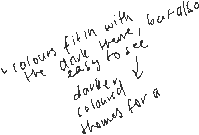 colours fit in with
the dark theme, but also
easy to see
darker
coloured
themes for a